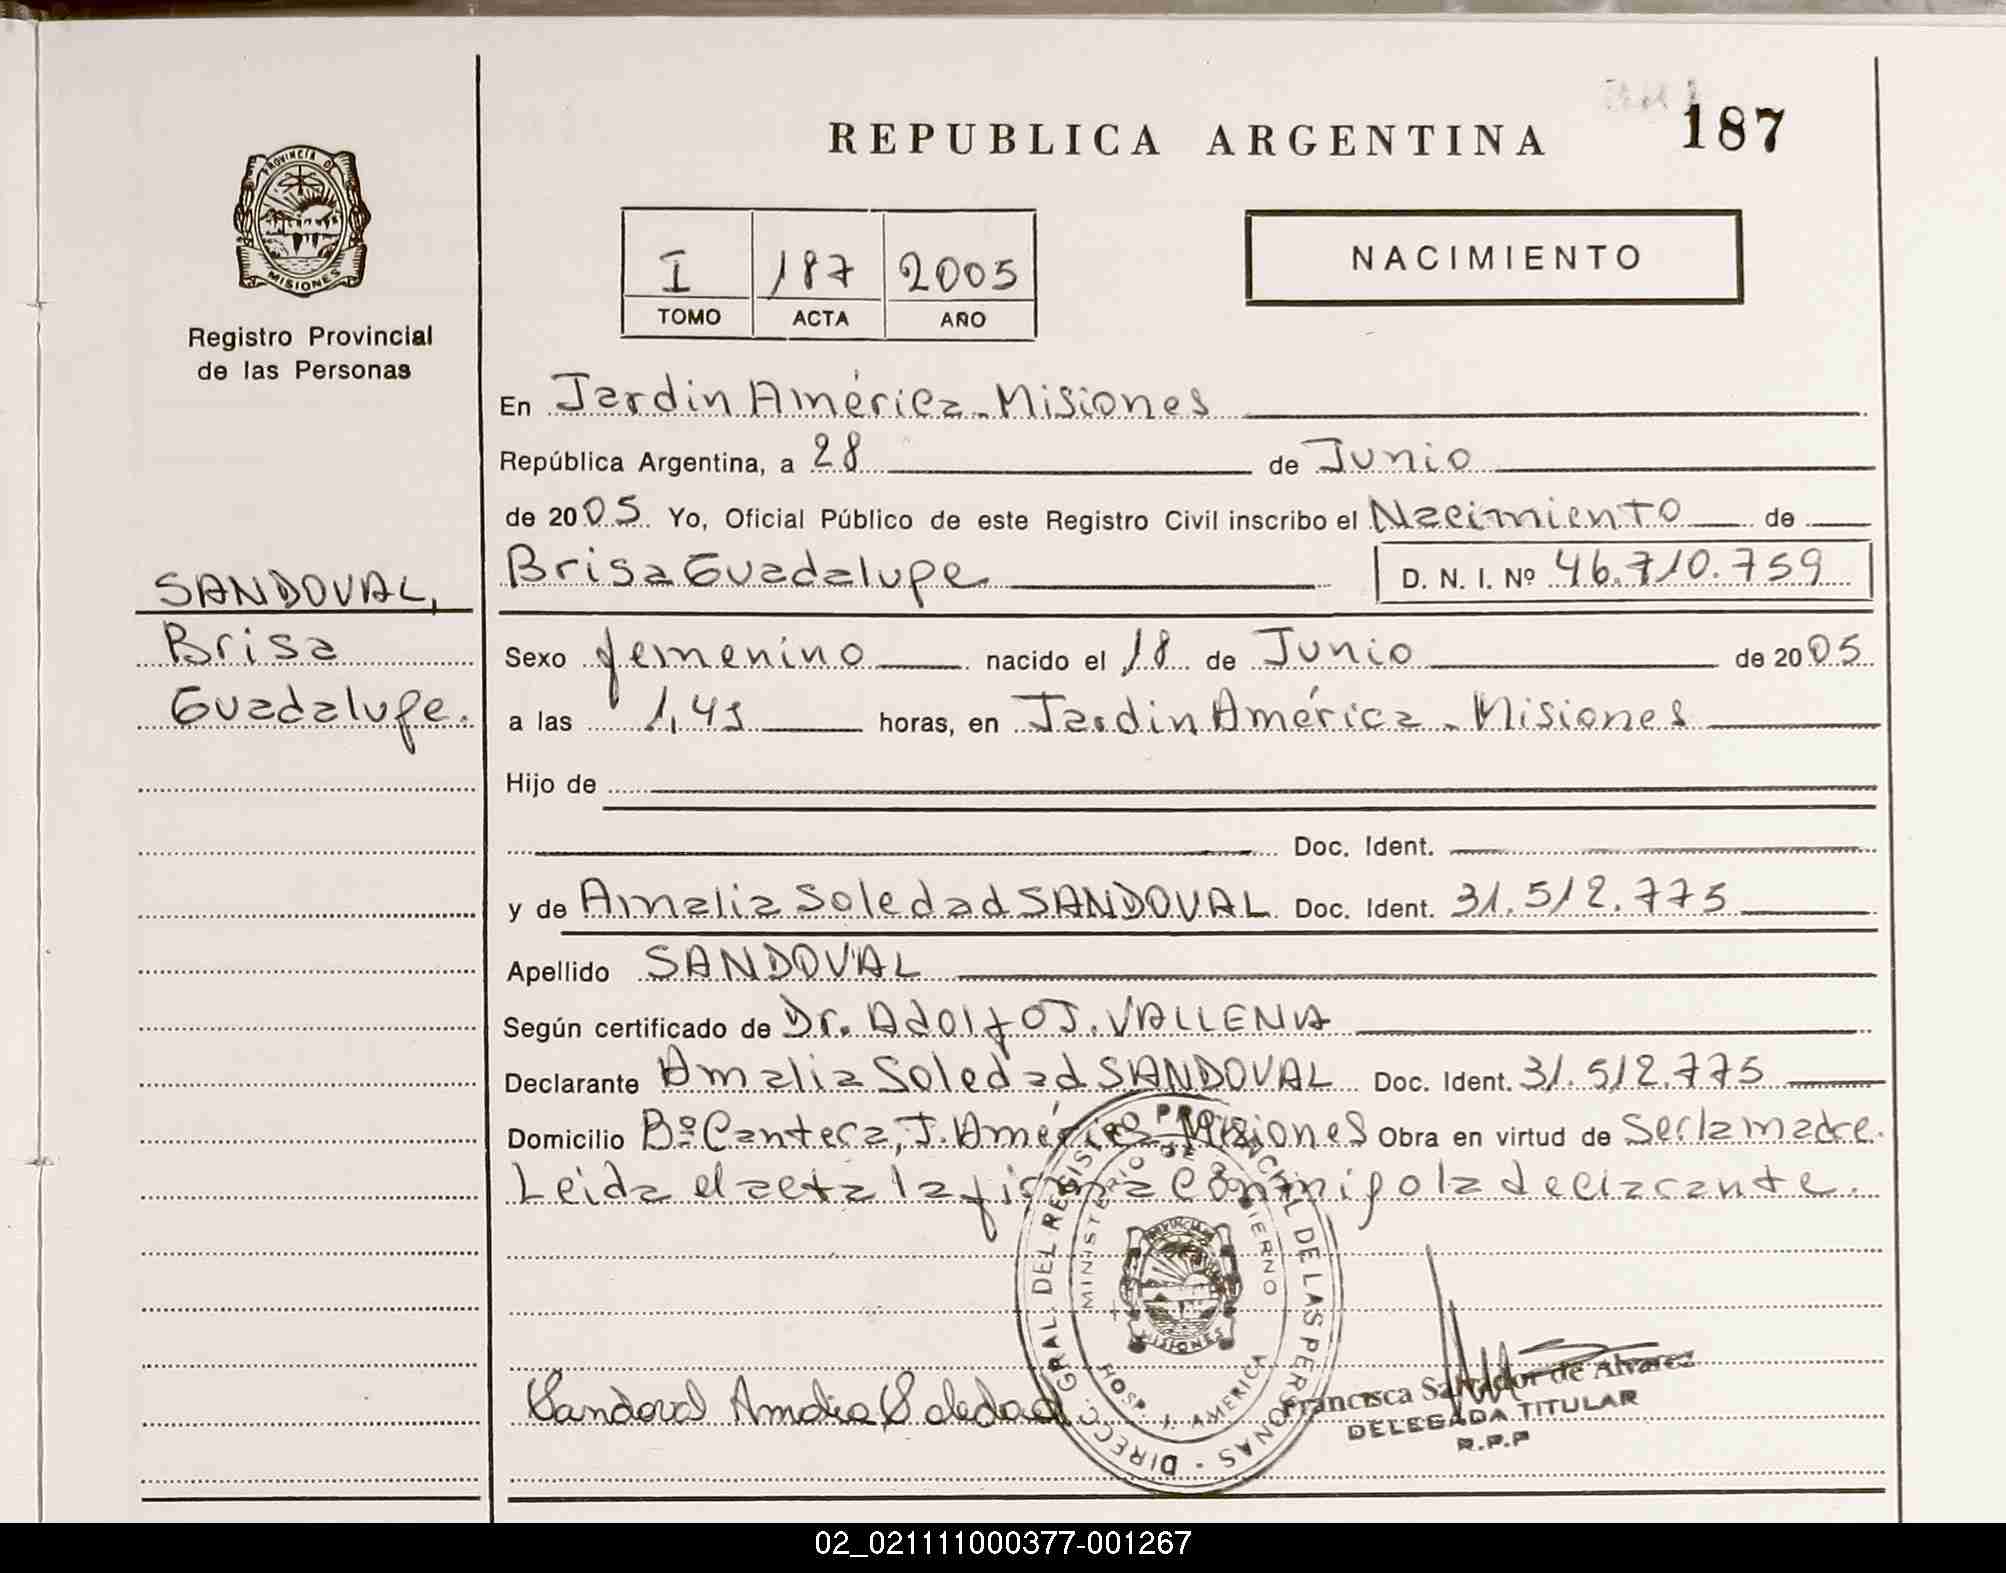 REPUBLICA ARGENTINA 187
PROVINCIA DE
MISIONES
Registro Provincial
de las Personas
I 187 2005
TOMO ACTA AÑO
NACIMIENTO
En Jardin América - Misiones
República Argentina, a 28 de Junio
de 2005 Yo, Oficial Público de este Registro Civil inscribo el Nacimiento de
Brisa Guadalupe D. N. I. Nº 46.710.759
SANDOVAL,
Brisa
Guadalupe.
Sexo femenino nacido el 18 de Junio de 2005
a las 1,41 horas, en Jardin América - Misiones
Hijo de
Doc. Ident.
y de Amalia Soledad SANDOVAL Doc. Ident. 31.512.775
Apellido SANDOVAL
Según certificado de Dr. Adolfo J. VALLENA
Declarante Amalia Soledad SANDOVAL Doc. Ident. 31.512.775
Domicilio Bº Cantera, J. América - Misiones Obra en virtud de Ser la madre.
Leida el acta la firma conmigo la declarante.
DIRECC. GRAL. DEL REGISTRO PROVINCIAL DE LAS PERSONAS
MINISTERIO DE GOBIERNO
HOSP. J. AMERICA
MISIONES
Sandoval Amalia Soledad
Francisca Salvador de Alvarez
DELEGADA TITULAR
R.P.P
02_021111000377-001267